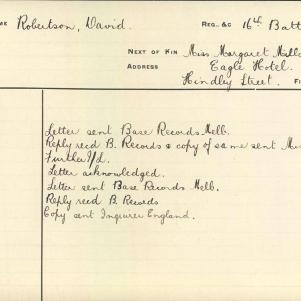 ME Robertson, David. REG. &C 16th Batt
NEXT OF KIN Miss Margaret
ADDRESS Eagle Hotel.
Hindley Street. F
Letter sent Base Records Melb.
Reply recd B. Records & copy of same sent
Further
Letter acknowledged.
Letter sent Base Records Melb.
Reply recd B. Records
Copy sent Inquirer England.